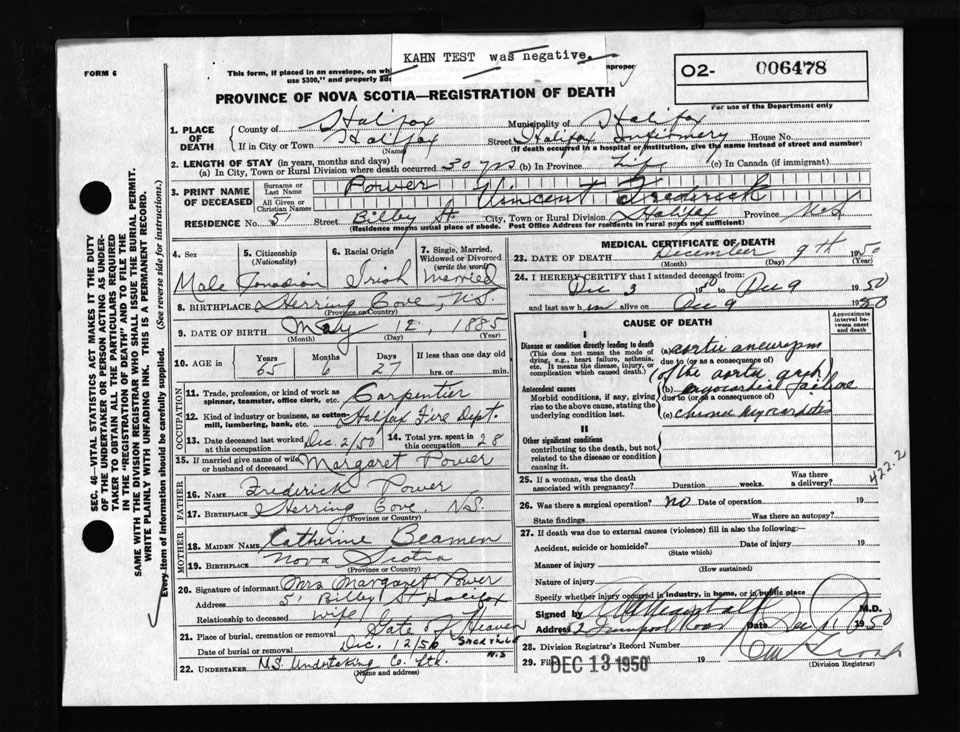 KAHN TEST was negative.
FORM 6
This form, if placed in an envelope, on wh
use $300," and properly add
improper
O2- 006478
For use of the Department only
PROVINCE OF NOVA SCOTIA—REGISTRATION OF DEATH
1. PLACE OF DEATH
County of Halifax Municipality of Halifax
If in City or Town Halifax Street Halifax Infirmary House No.
(Name) (If death occurred in a hospital or institution, give the name instead of street and number)
2. LENGTH OF STAY (in years, months and days)
(a) In City, Town or Rural Division where death occurred 30 yrs (b) In Province Life (c) In Canada (if immigrant)
3. PRINT NAME OF DECEASED
Surname or Last Name Power
All Given or Christian Names Vincent Frederick
RESIDENCE No. 5 Street Bilby St. City, Town or Rural Division Halifax Province N.S.
(Residence means usual place of abode. Post Office Address for residents in rural parts not sufficient)
4. Sex
Male
5. Citizenship (Nationality)
Canadian
6. Racial Origin
Irish
7. Single, Married, Widowed or Divorced (write the word)
Married
8. BIRTHPLACE Herring Cove, N.S.
(Province or Country)
9. DATE OF BIRTH May 12, 1885
(Month) (Day) (Year)
10. AGE in
Years Months Days If less than one day old
65 6 27 hrs. or min.
OCCUPATION
11. Trade, profession, or kind of work as spinner, teamster, office clerk, etc. Carpentier
12. Kind of industry or business, as cotton-mill, lumbering, bank, etc. Halifax Fire Dept.
13. Date deceased last worked at this occupation Dec 2/50
14. Total yrs. spent in this occupation 28
15. If married give name of wife or husband of deceased Margaret Power
FATHER
16. Name Frederick Power
17. BIRTHPLACE Herring Cove, N.S.
(Province or Country)
MOTHER
18. MAIDEN NAME Catherine Beamen
19. BIRTHPLACE Nova Scotia
(Province or Country)
20. Signature of informant Mrs Margaret Power
Address 5 Bilby St Halifax
Relationship to deceased wife
21. Place of burial, cremation or removal Gate of Heaven
Date of burial or removal Dec. 12/50 Sackville N.S
22. UNDERTAKER N.S. Undertaking Co. Ltd.
(Name and address)
MEDICAL CERTIFICATE OF DEATH
23. DATE OF DEATH December 9th 1950
(Month) (Day) (Year)
24. I HEREBY CERTIFY that I attended deceased from
Dec 3 1950 to Dec 9 1950
and last saw him alive on Dec 9 1950
CAUSE OF DEATH
Approximate interval between onset and death
I
Disease or condition directly leading to death
(This does not mean the mode of dying, e.g., heart failure, asthenia, etc. It means the disease, injury, or complication which caused death.)
(a) aortic aneurysm
due to (or as a consequence of)
of the aortic arch
Antecedent causes
Morbid conditions, if any, giving rise to the above cause, stating the underlying condition last.
(b) myocardial failure
due to (or as a consequence of)
(c) chronic myocarditis
II
Other significant conditions
contributing to the death, but not related to the disease or condition causing it.
422.2
25. If a woman, was the death associated with pregnancy? Duration weeks. Was there a delivery?
26. Was there a surgical operation? No Date of operation 19
State findings Was there an autopsy?
27. If death was due to external causes (violence) fill in also the following:—
Accident, suicide or homicide? Date of injury 19
(State which)
Manner of injury
(How sustained)
Nature of injury
Specify whether injury occurred in industry, in home, or in public place
Signed by M.D.
Address Date Dec 1950
28. Division Registrar's Record Number
29. Filed DEC 13 1950 19
(Division Registrar)
SEC. 46—VITAL STATISTICS ACT MAKES IT THE DUTY
OF THE UNDERTAKER OR PERSON ACTING AS UNDER-
TAKER TO OBTAIN ALL THE PARTICULARS REQUIRED
IN THE "REGISTRATION OF DEATH" AND TO FILE THE
SAME WITH THE DIVISION REGISTRAR WHO SHALL ISSUE THE BURIAL PERMIT.
WRITE PLAINLY WITH UNFADING INK. THIS IS A PERMANENT RECORD.
Every item of information should be carefully supplied. (See reverse side for instructions.)